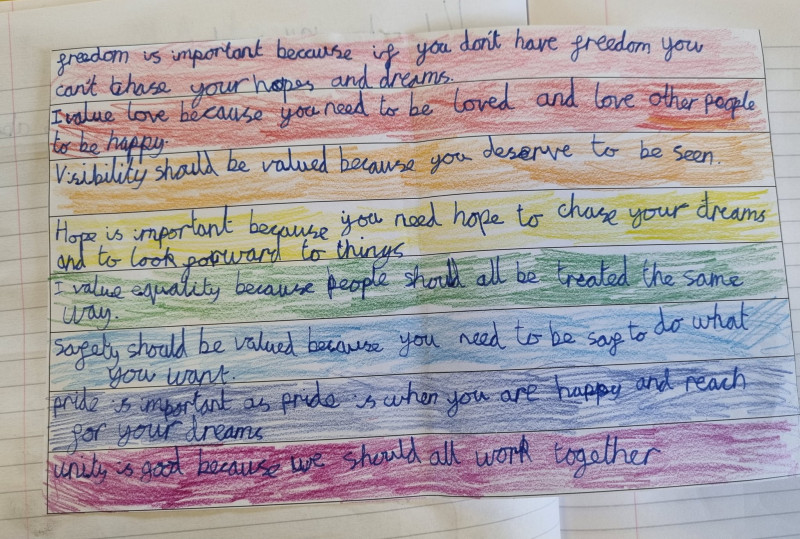 freedom is important because if you don't have freedom you
can't chase your hopes and dreams.
I value love because you need to be loved and love other people
to be happy.
Visibility should be valued because you deserve to be seen.
Hope is important because you need hope to chase your dreams
and to look forward to things
I value equality because people should all be treated the same
way.
Safety should be valued because you need to be saf to do what
you want.
pride is important as pride is when you are happy and reach
for your dreams
unity is good because we should all work together